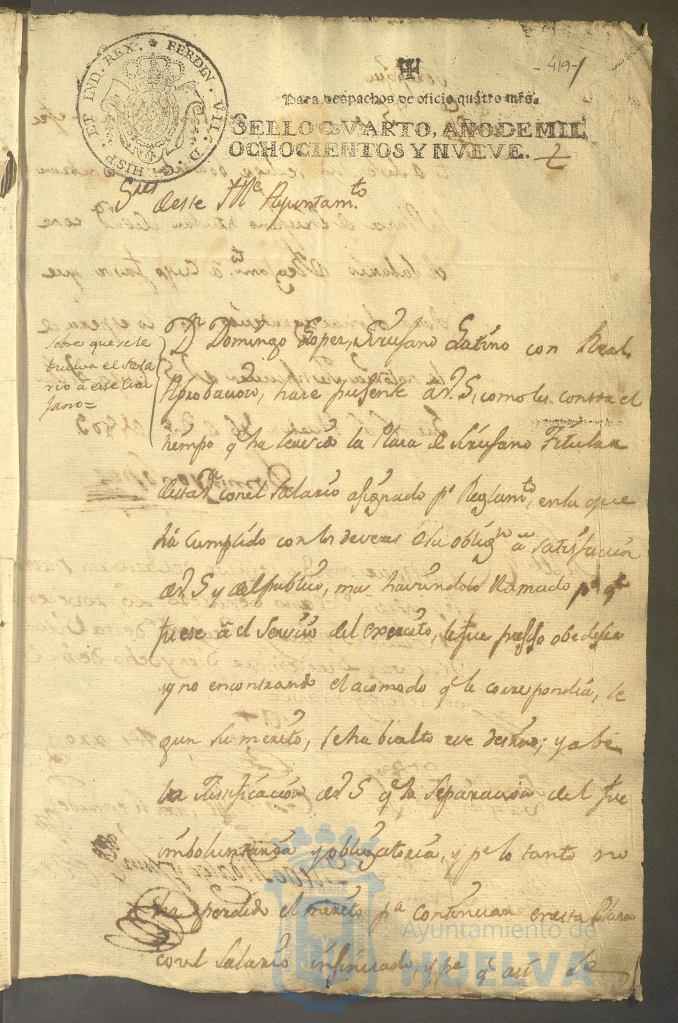 FERDIN. VII. D. G. HISP. ET IND. REX.
419
Para despachos de oficio quatro mrs.
SELLO QVARTO, AÑO DE MIL
OCHOCIENTOS Y NVEVE.
Sres deste Ille Ayuntam.to
sobre que se le
buelva el sala
rio a este Ciru
jano =
Dn Domingo Lopez, Sirujano Latino con Real
Aprobacion, hace presente a V. S. como le consta el
tiempo q ha servido la Plaza de Sirujano Titular
desta con el Salario asignado pr Reglamto, en la que
ha cumplido con los deveres de su obligon a satisfacion
de V. S y del publico, mas haviendolo llamado pa q
fuese a el Servicio del exercito, le fue preciso obedeser
y no encontrando el acomodo q le correspondia, se
gun su merito, se ha buelto ese destino; y a be
la Justificacion de V. S q la separacion del fue
imboluntaria y obligatoria, y pr lo tanto no
ha perdido el merito pa continuar en esta Plaza
con el Salario insinuado, y pa q asi se
Ayuntamiento de
HUELVA